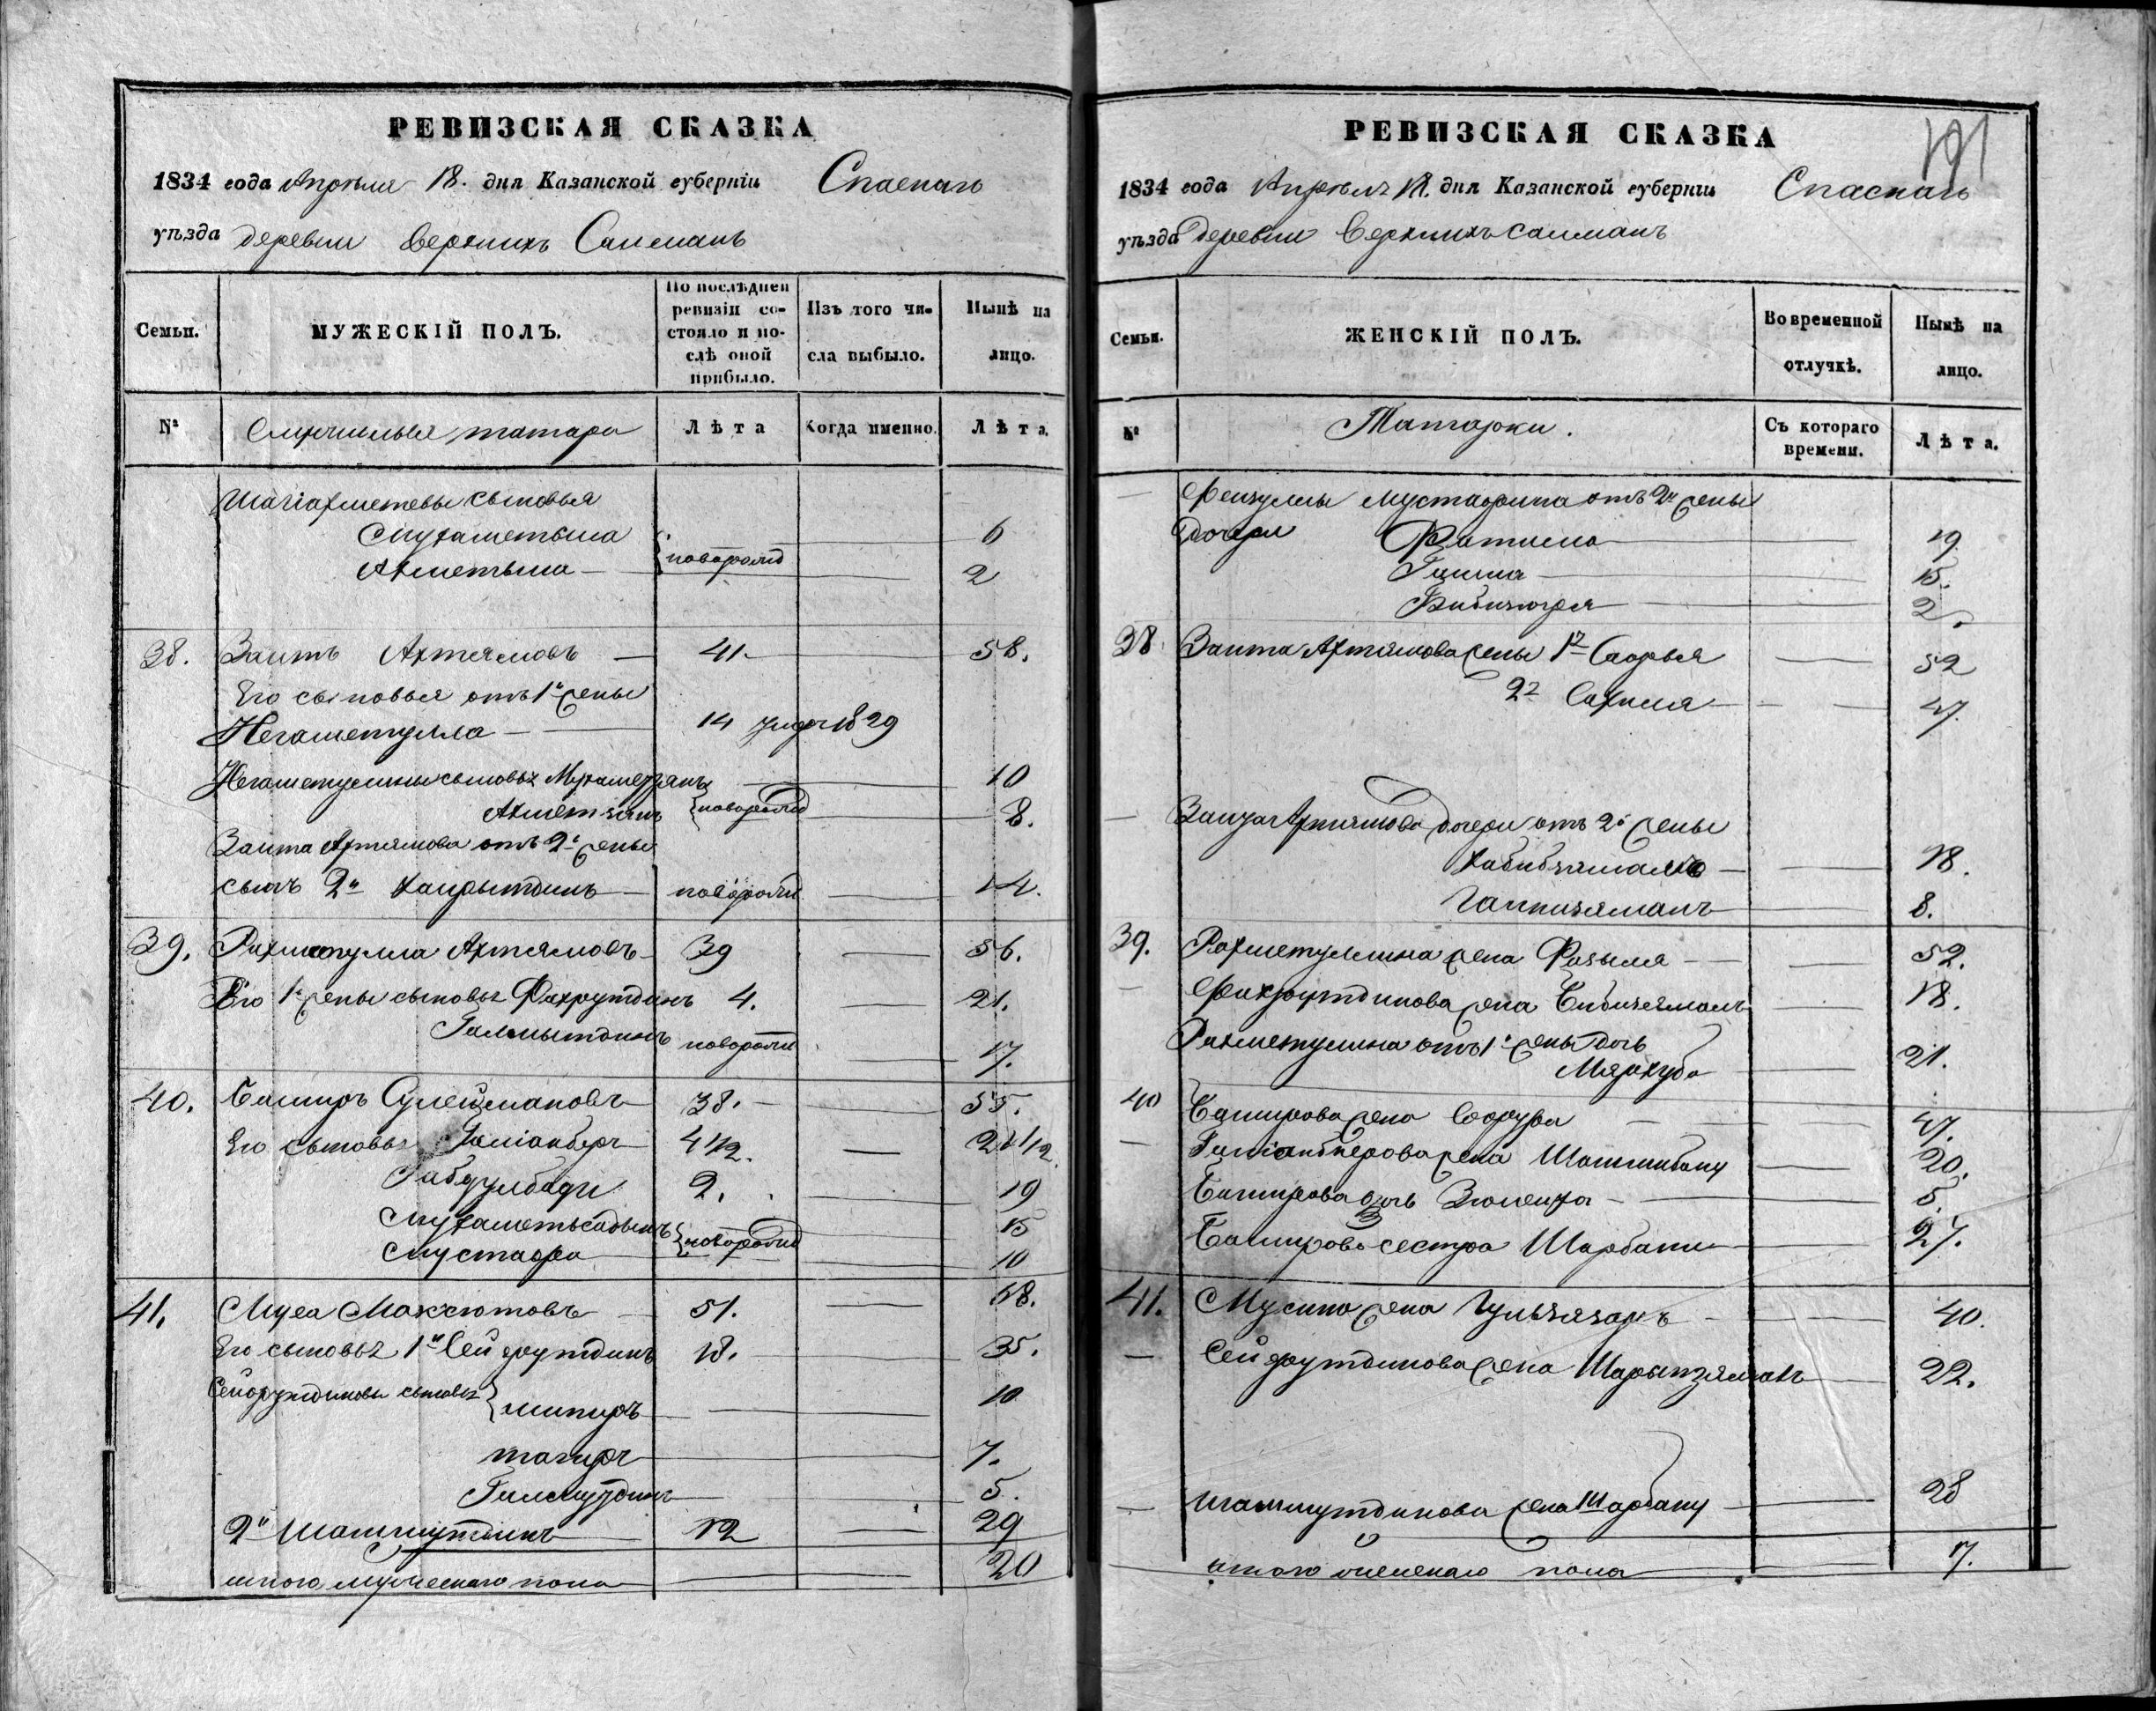 РЕВИЗСКАЯ СКАЗКА
1834 года Апреля 18. дня Казанской губерніи Спаскаго
уѣзда деревни Верхнихъ Салманъ
Семьи.
МУЖЕСКІЙ ПОЛЪ.
По послѣдней ревизіи состояло и послѣ оной прибыло.
Изъ того числа выбыло.
Нынѣ на лицо.
№ татара Лѣта Когда именно. Лѣта.
сыновья
Мухаметьша 6
Ахметьша новорожд 2
38. Заитъ Ахтямовъ 41 58.
Его сыновья отъ 1й жены
Негаметулла 14 умеръ 1829
Негаметулины сыновья Мухаметзянъ 10
Ахметзянъ новорожд 8.
Заита Ахтямова отъ 2й жены
сынъ 2й Хайрытдинъ новорожд 14.
39. Рахметулла Ахтямовъ 39 56.
Его 1й жены сыновья Фахрутдинъ 4. 21.
новорожд 17.
40. Баширъ Сулеймановъ 38. 55.
Его сыновья 4 1/2. 21 1/2.
2. 19
Мухаметьсадыкъ 15
Мустафа новорожд 10
41. Муса Максютовъ 51. 68.
Его сыновья 1й Сейфутдинъ 18. 35.
Сейфутдиновы сыновья 10
тагиръ 7.
5.
2й Шаммутдинъ 12 29
итого мужескаго пола 20
РЕВИЗСКАЯ СКАЗКА
191
1834 года Апреля 18. дня Казанской губерніи Спаскаго
уѣзда деревни Верхнихъ Салманъ
Семьи.
ЖЕНСКІЙ ПОЛЪ.
Во временной отлучкѣ.
Нынѣ на лицо.
№ Татарки. Съ котораго времени. Лѣта.
Фейзуллы Мустафина отъ 2й жены
Дочери Фатима 19
15.
2.
38 Заита Ахтямова жены 1я 52
2я 47.
Ахтямова дочери отъ 2й жены
Хабибзямалъ 18.
8.
39. Рахметуллина жена Фазыля 52.
Фахрутдинова жена Бибизямалъ 18.
Рахметуллина отъ 1й жены дочь
21.
40 Баширова жена 47.
жена Шамшибану 20.
Баширова дочь 5.
Баширова сестра 27.
41. Мусина жена 40.
Сейфутдинова жена 22.
Шаммутдинова жена Шарбану 28
итого женскаго пола 17.